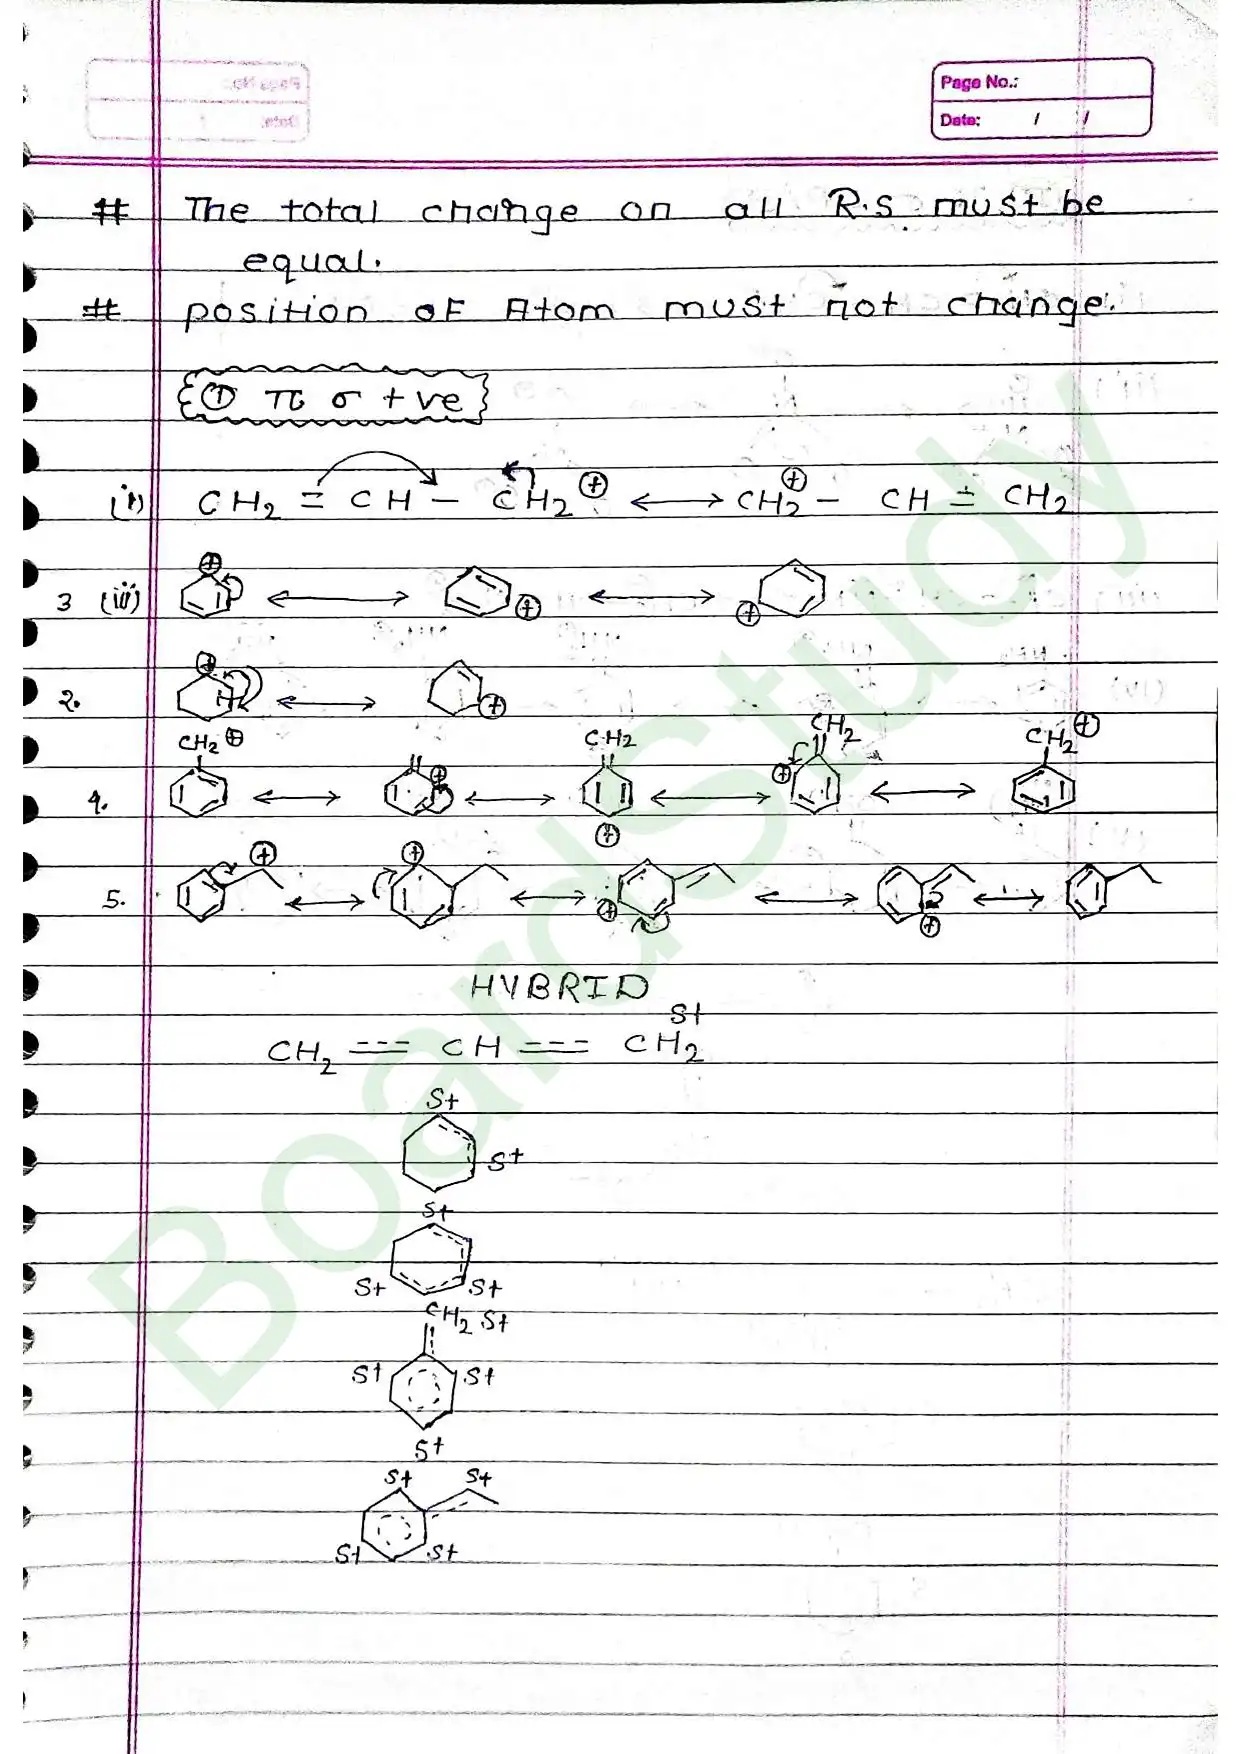 Page No.:
Date: / /
# The total change on all R.S must be
equal.
# position of Atom must not change.
① π σ +ve
(i) CH2 = CH - CH2⊕ ⟷ CH2⊕ - CH = CH2
3 (iii) ⊕ ⟷ ⊕ ⟷ ⊕
2. ⊕ H ⟷ ⊕
CH2⊕ CH2 CH2 CH2⊕
4. ⟷ ⊕ ⟷ ⊕ ⟷ ⊕ ⟷
5. ⊕ ⟷ ⊕ ⟷ ⊕ ⟷ ⊕ ⟷
HYBRID
S+
CH2 === CH === CH2
S+
S+
S+
S+ S+
CH2 S+
S+ S+
S+
S+ S+
S+ S+
BoardStudy